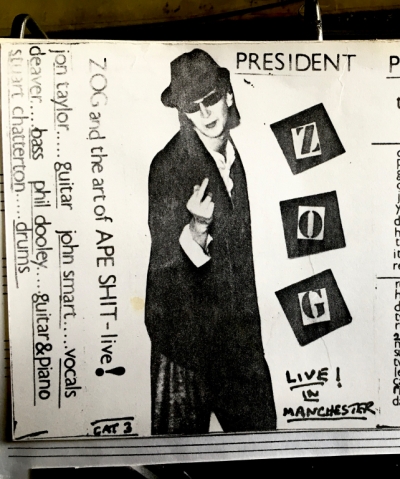 PRESIDENT
Z
O
G
LIVE!
IN
MANCHESTER
ZOG and the art of APE SHIT-live!
jon taylor.....guitar john smart.....vocals
deaver....bass phil dooley....guitar&piano
chatterton.....drums
CAT 3
P